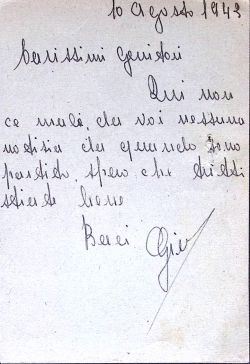 10 Agosto 1943
Carissimi Genitori
Qui non
ce male, da voi nessuna
notizia da quando sono
partito, spero che tutti
stiate bene
Baci